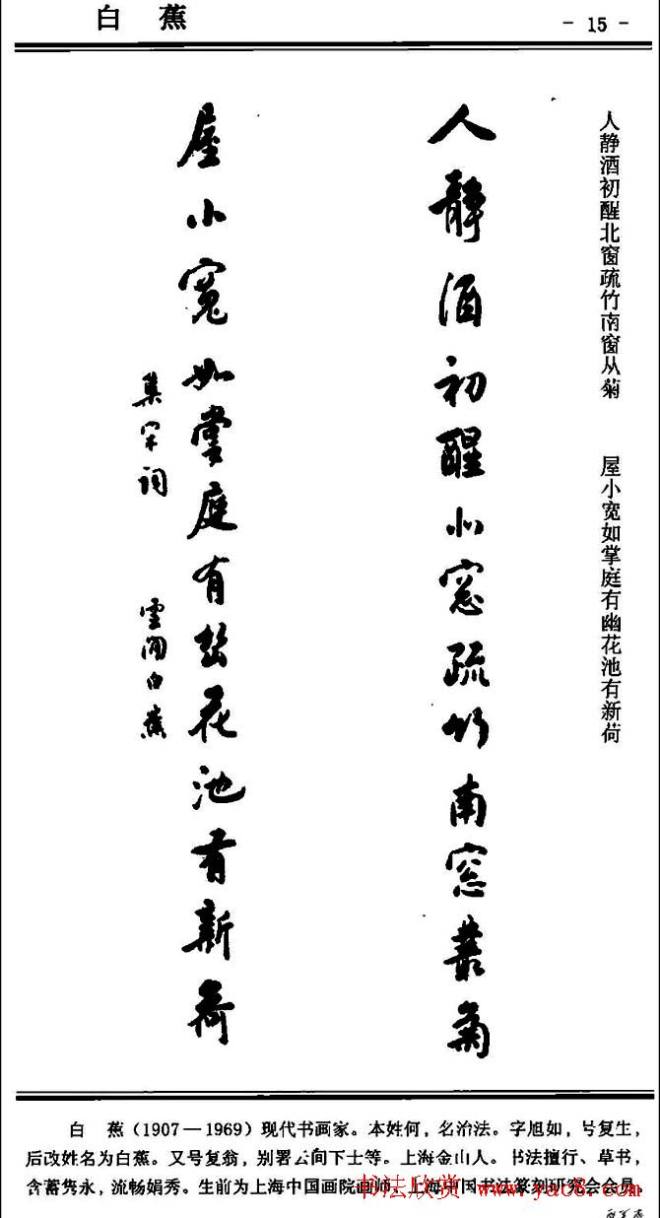 白 蕉
- 15 -
人静酒初醒北窗疏竹南窗从菊 屋小宽如掌庭有幽花池有新荷
人靜酒初醒北窓疏竹南窓叢菊
屋小寬如掌庭有幽花池有新荷
集宋詞 雲间白蕉
白 蕉（1907—1969）现代书画家。本姓何，名治法。字旭如，号复生，
后改姓名为白蕉。又号复翁，别署云间下士等。上海金山人。书法擅行、草书，
含蓄隽永，流畅娟秀。生前为上海中国画院画师、上海中国书法篆刻研究会会员。
书法欣赏 www.yac8.com